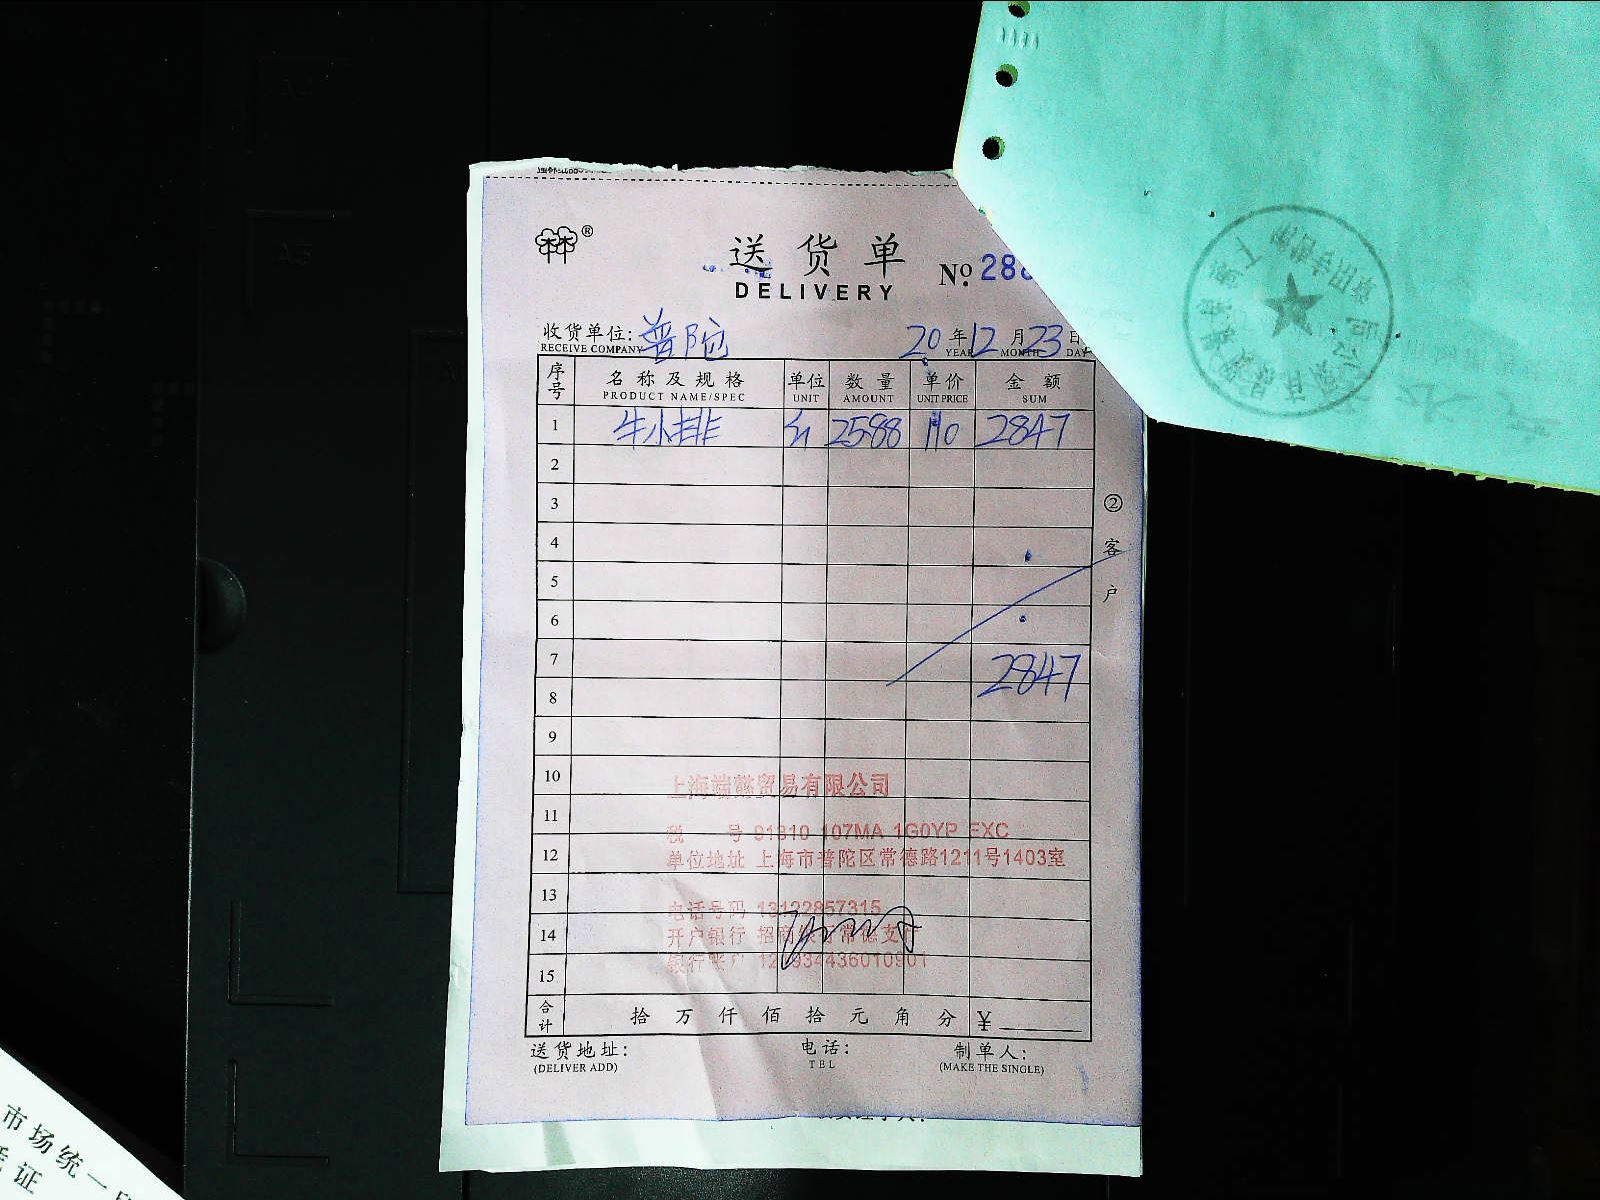 送货单
DELIVERY
№ 288
收货单位: 普陀 20 年 12 月 23 日
RECEIVE COMPANY YEAR MONTH DAY
序号 名称及规格 单位 数量 单价 金额
PRODUCT NAME/SPEC UNIT AMOUNT UNIT PRICE SUM
1 牛小排 2588 110 2847
2
3
4
5
6
7 2847
8
9
10
上海端懿贸易有限公司
11
税 号 91310 107MA 1G0YP EXC
12
单位地址 上海市普陀区常德路1211号1403室
13
电话号码 13122857315
14
开户银行 招商银行常德支行
15
银行账户
合计 拾 万 仟 佰 拾 元 角 分 ¥
送货地址: 电话: 制单人:
(DELIVER ADD) TEL (MAKE THE SINGLE)
② 客户
市场统一
证